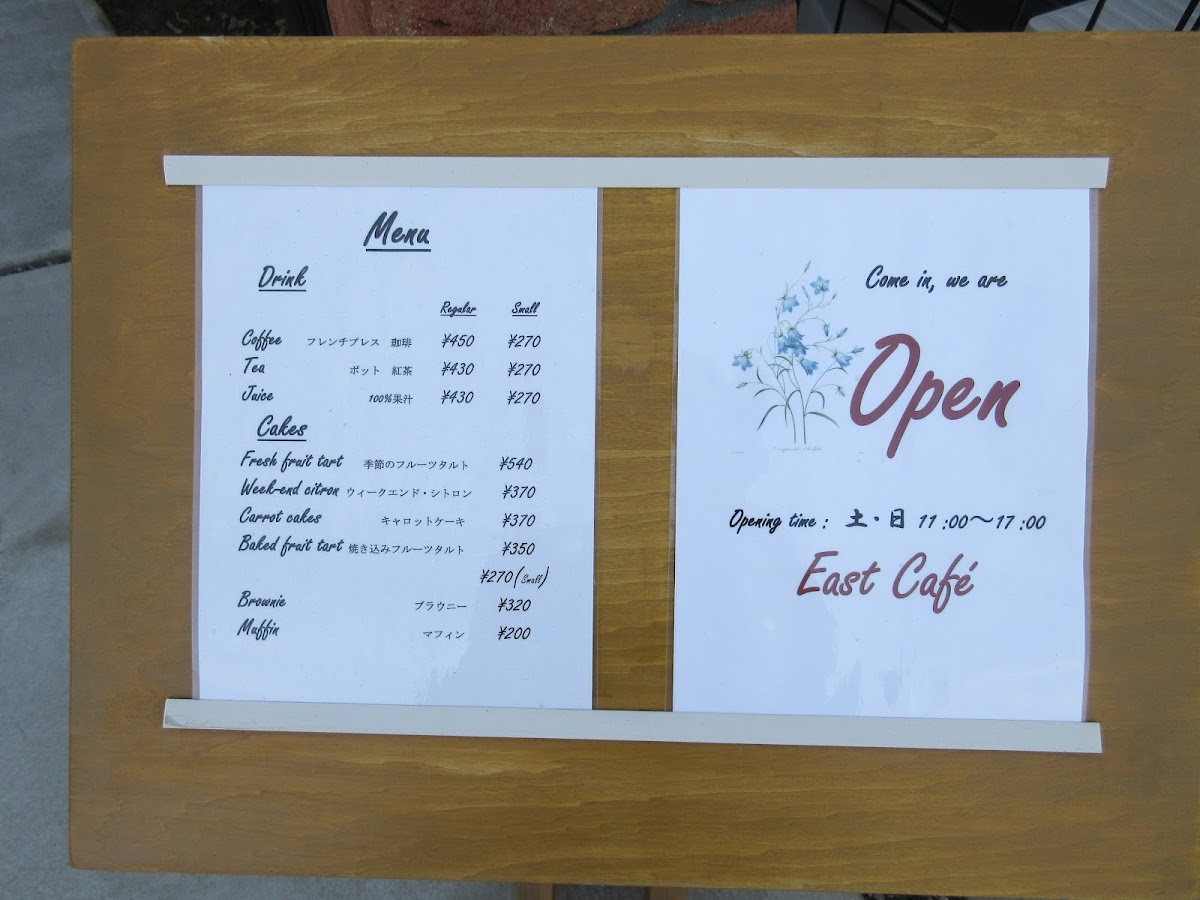 Menu
Drink
Regular Small
Coffee フレンチプレス 珈琲 ¥450 ¥270
Tea ポット 紅茶 ¥430 ¥270
Juice 100%果汁 ¥430 ¥270
Cakes
Fresh fruit tart 季節のフルーツタルト ¥540
Week-end citron ウィークエンド・シトロン ¥370
Carrot cakes キャロットケーキ ¥370
Baked fruit tart 焼き込みフルーツタルト ¥350
¥270(Small)
Brownie ブラウニー ¥320
Muffin マフィン ¥200
Come in, we are
Open
Opening time : 土・日 11:00〜17:00
East Café